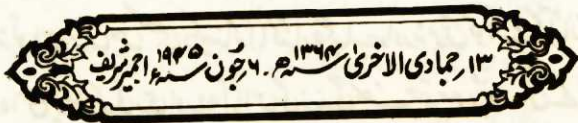 ۱۳ر جمادی الاخریٰ ۱۳۶۴ھ . ۶ر جُون ۱۹۴۵ء اجمیر شریف